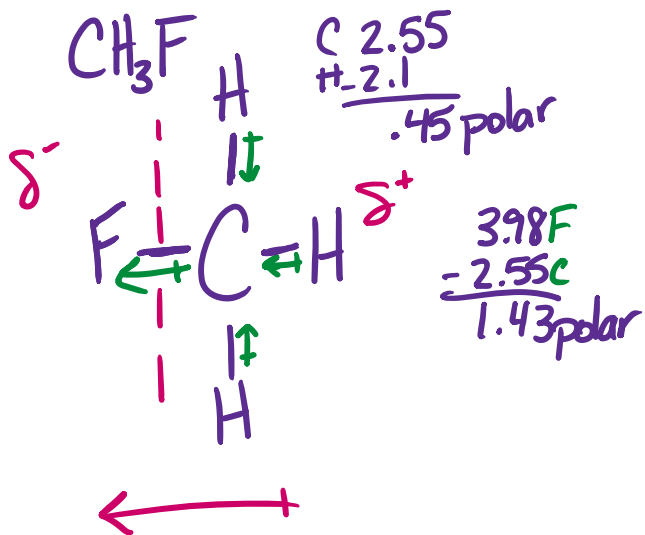 CH₃F
C 2.55
H-2.1
.45 polar
H
δ⁻
δ⁺
F C H
H
3.98 F
- 2.55 C
1.43 polar